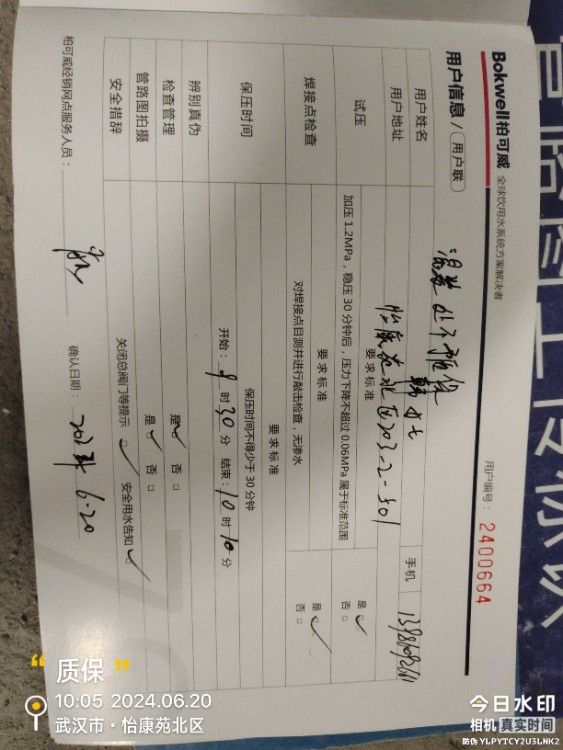 Bokwell柏可威 全球饮用水系统方案解决者
用户信息 / 用户联
用户编号： 2400664
用户姓名 韩女士 手机
用户地址 怡康苑北区203-2-501
试压 要求标准
加压 1.2MPa，稳压 30 分钟后，压力下降不超过 0.06MPa 属于标准范围 是 ✓ 否 □
焊接点检查 要求标准
对焊接点目测并进行敲击检查，无渗水 是 ✓ 否 □
保压时间 要求标准
保压时间不得少于 30 分钟
开始：9 时 30 分 结束：10 时 10 分
辨别真伪 是 ✓ 否 □
检查管理 是 ✓ 否 □
管路图拍摄
安全措辞 关闭总阀门等提示 ✓ 安全用水告知 ✓
柏可威经销网点服务人员：
确认日期： 2024 6.20
“ 质保 ”
10:05 2024.06.20
武汉市·怡康苑北区
今日水印
相机 真实时间
防伪 YLPYTCY2U3LNK2